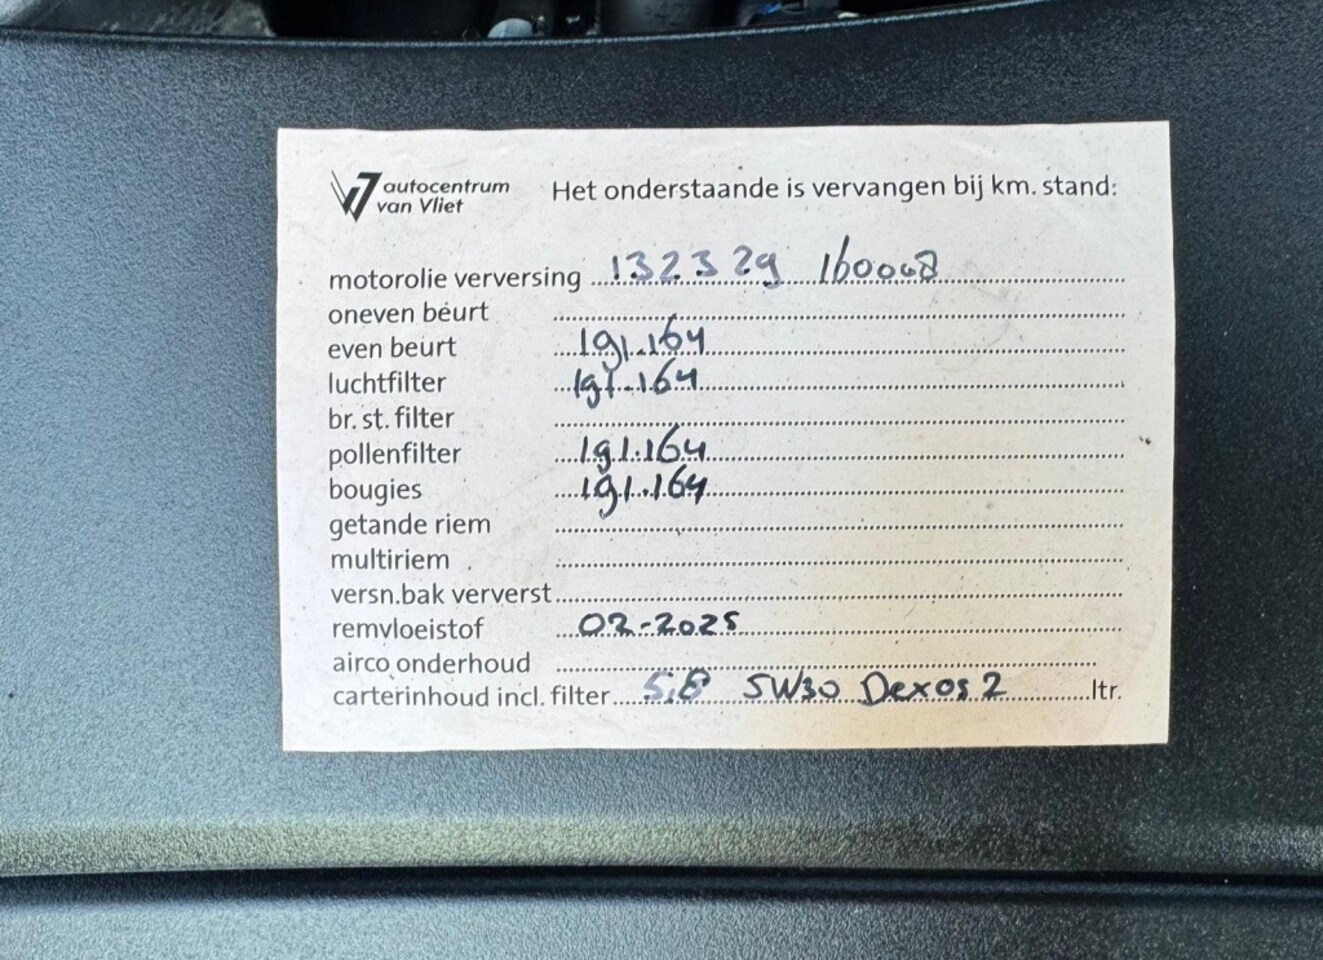 autocentrum
van Vliet
Het onderstaande is vervangen bij km. stand:
motorolie verversing 132329 160008
oneven beurt
even beurt 191.164
luchtfilter 191.164
br. st. filter
pollenfilter 191.164
bougies 191.164
getande riem
multiriem
versn.bak ververst
remvloeistof 02-2025
airco onderhoud
carterinhoud incl. filter 5,8 5W30 Dexos 2 ltr.